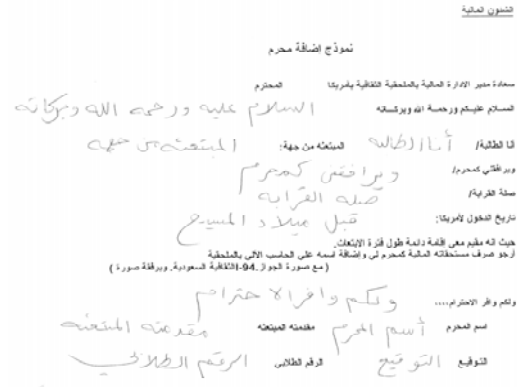 الشئون المالية
نموذج إضافة محرم
سعادة مدير الادارة المالية بالملحقية الثقافية بأمريكا المحترم
السلام عليكم ورحمة الله وبركاته السلام عليه ورحمه الله وبركاته
أنا الطالبة/ أنا الطالبه المبتعثه من جهة: المبتعثه من جهه
ويرافقني كمحرم/ ويرافقني كمحرم
صلة القرابة/ صله القرابه
تاريخ الدخول لأمريكا: قبل ميلاد المسيح
حيث انه مقيم معى إقامة دائمة طول فترة الابتعاث.
أرجو صرف مستحقاته المالية كمحرم لي وإضافة اسمه على الحاسب الآلي بالملحقية
الثقافية السعودية. ويرفقة صورة ( مع صورة الجواز.94-ا )
ولكم وافر الاحترام..... ولكم وافر الاحترام
اسم المحرم أسم المحرم مقدمته المبتعثه مقدمته المبتعثه
التوقيع التوقيع الرقم الطلابى الرقم الطلابي